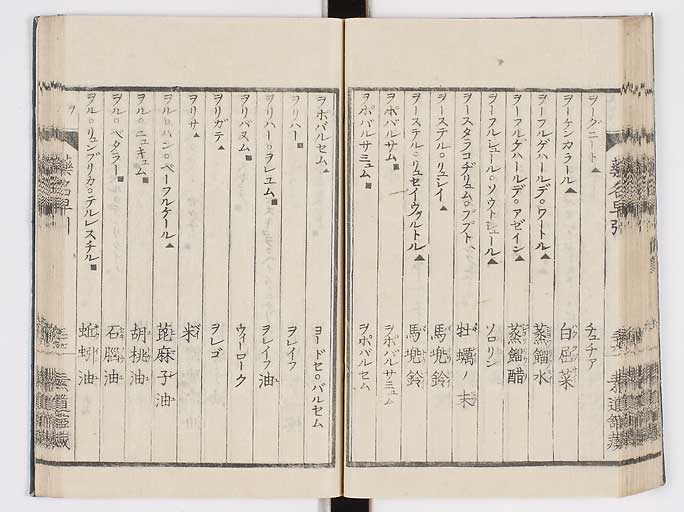 ヲークニート▲ チュチア
ヲーケンカラール▲ 白屈菜
ヲーフルゲハールデ○ワートル▲ 蒸餾水
ヲーフルゲハールデ○アゼイン▲ 蒸餾醋
ヲーフルシュール○ソウトシュール▲ ソロリン
ヲースタラコヂリュム○ププト、 牡蠣ノ末
ヲーステル○リュレイ▲ 馬兜鈴
ヲーステル○リュセイウヲルトル▲ 馬兜鈴
ヲポバルサム■ ヲポバルサミュム
ヲポバルサミュム■ ヲポバルセム
藥名早引
ヲポバルセム▲ ヨードセ○バルセム
ヲリハー■ ヲレイフ
ヲリハー○ヲレユム■ ヲレイフ油
ヲリバヌム■ ウィーローク
ヲリガテ▲ ヲレゴ
ヲリサ▲ 米
ヲル○ハン○ペーフルケール▲ 蓖麻子油
ヲル○ニュキュム■ 胡桃油
ヲル○ペタラー■ 石腦油
ヲル○リュンブリカ○テルレスチル■ 蚯蚓油
ヲ
藥名早引